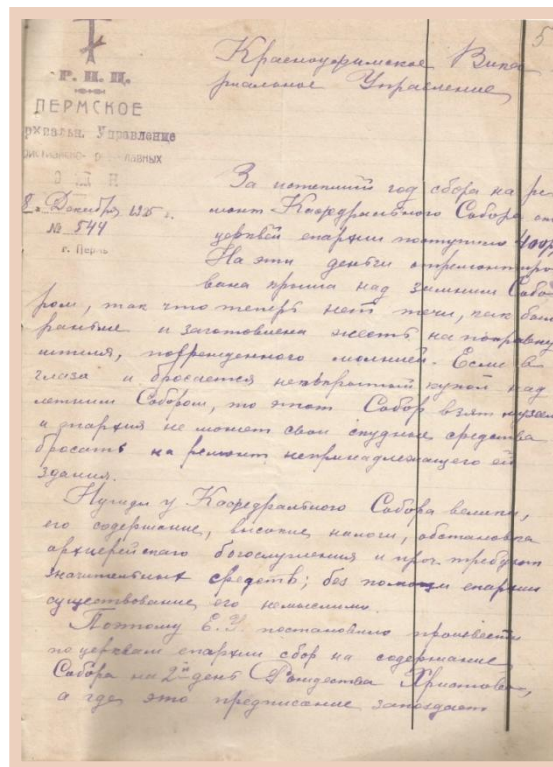 5
Красноуфимское Вика-
риальное Управление
Р. П. Ц.
ПЕРМСКОЕ
рхиальн. Управление
8 Декабря 1925 г.
№ 544
г. Пермь
За истекший год сбора на ре-
монт Кафедрального Собора от
церквей епархии поступило 400 р
На эти деньги отремонтиро-
вана крыша над зимним Собо-
ром, так что теперь нет течи, как было
раньше и заготовлена жесть на поправку
шпиля, поврежденного молнией. Если в
глаза и бросается неокрашенный купол над
летним Собором, то этот Собор взят музеем
и епархия не может свои скудные средства
бросать на ремонт непринадлежащего ей
здания.
Нужды у Кафедрального Собора велики,
его содержание, высокие налоги, обстановка
архиерейского богослужения и проч. требуют
значительных средств; без помощи епархии
существование его немыслимо.
Поэтому Е. У. постановило произвести
по церквам епархии сбор на содержание
Собора на 2й день Рождества Христова,
а где это предписание запоздает